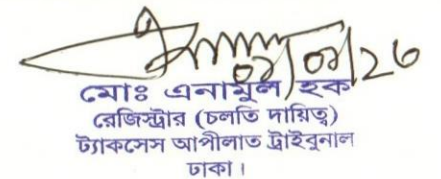 ০১/০১/২৩
মোঃ এনামুল হক
রেজিস্ট্রার (চলতি দায়িত্ব)
ট্যাকসেস আপীলাত ট্রাইবুনাল
ঢাকা।